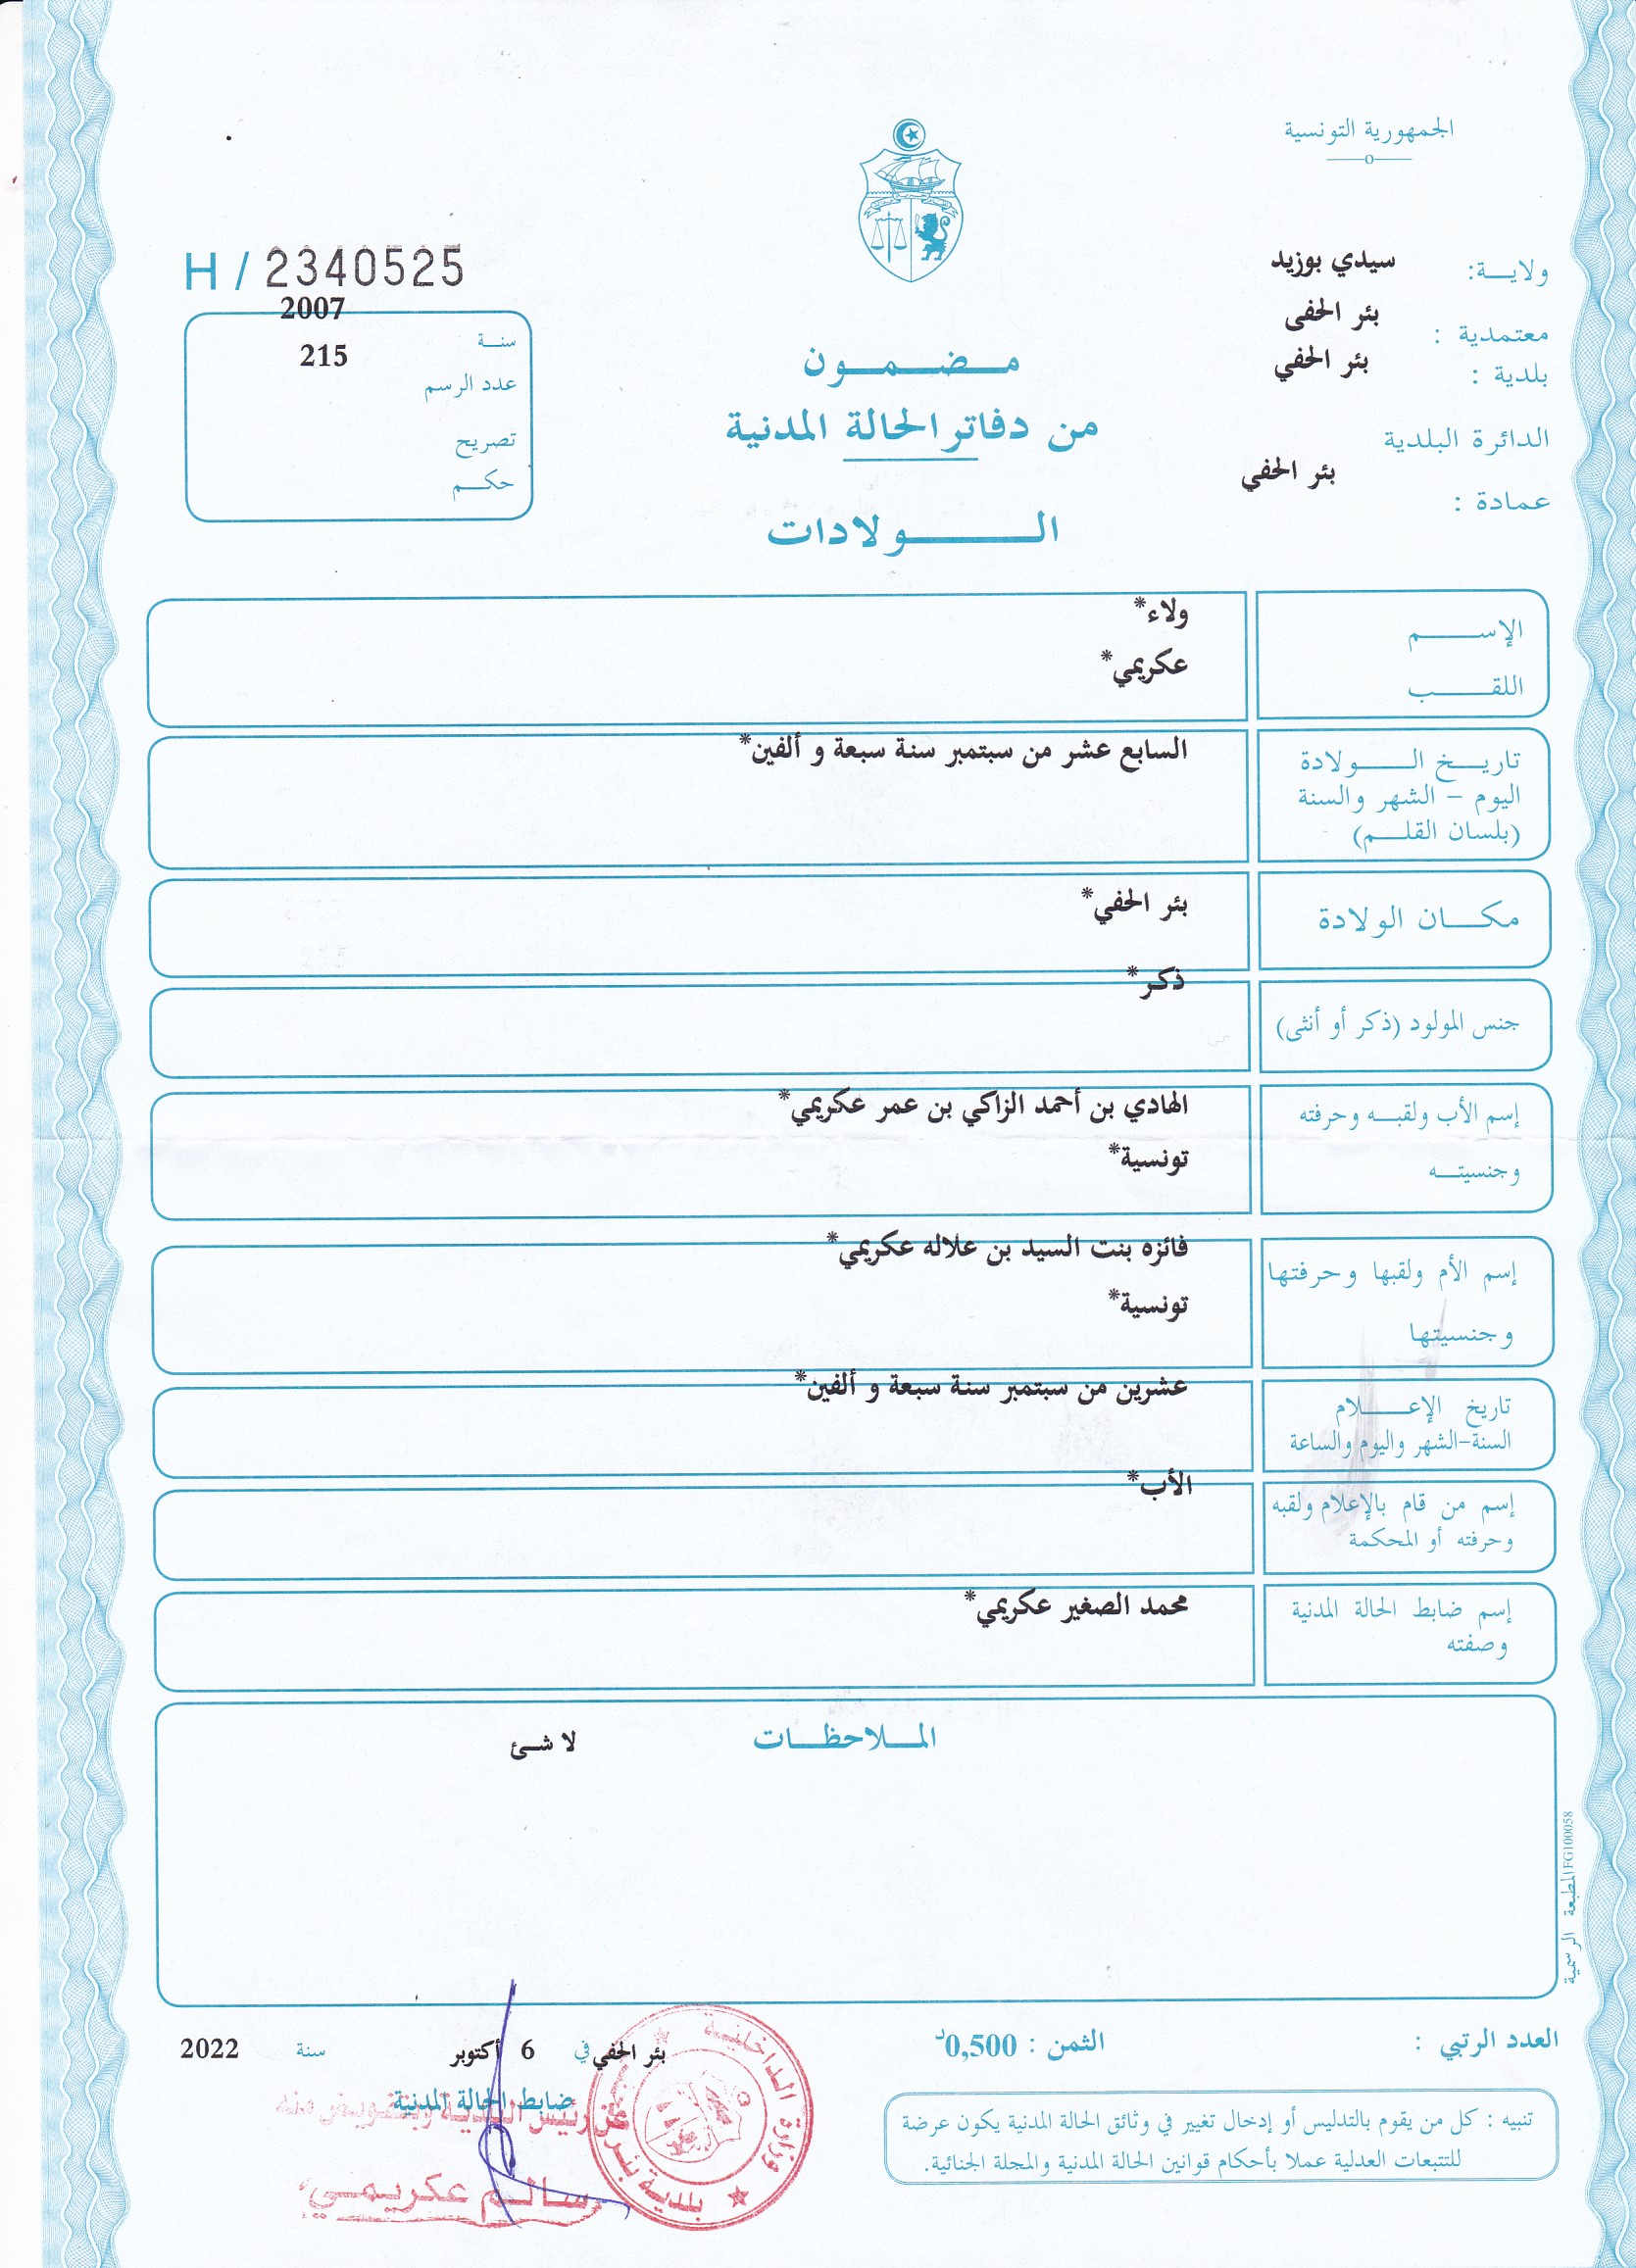 الجمهورية التونسية
ولايـــة: سيدي بوزيد
معتمدية : بئر الحفى
بلدية : بئر الحفي
الدائرة البلدية
عمادة : بئر الحفي
مـــضـــمـــون
من دفاتر الحالة المدنية
الـــــولادات
H / 2340525
سنــة 2007
عدد الرسم 215
تصريح
حكـــم
الإســــــم ولاء*
اللقــــــب عكريمي*
تاريـــخ الـــــولادة السابع عشر من سبتمبر سنة سبعة و ألفين*
اليوم – الشهر والسنة
(بلسان القلـــم)
مكـــان الولادة بئر الحفي*
جنس المولود (ذكر أو أنثى) ذكر*
إسم الأب ولقبــه وحرفته الهادي بن أحمد الزاكي بن عمر عكريمي*
وجنسيتـــه تونسية*
إسم الأم ولقبها وحرفتها فائزه بنت السيد بن علاله عكريمي*
وجنسيتها تونسية*
تاريخ الإعـــــلام عشرين من سبتمبر سنة سبعة و ألفين*
السنة-الشهر واليوم والساعة
إسم من قام بالإعلام ولقبه الأب*
وحرفته أو المحكمة
إسم ضابط الحالة المدنية محمد الصغير عكريمي*
وصفته
المـــلاحظـــات لا شئ
المطبعة الرسمية FG100058
العدد الرتبي :
الثمن : 0,500د
بئر الحفي في 6 أكتوبر سنة 2022
ضابط الحالة المدنية
عن رئيس البلدية وبتفويض منه
سالم عكريمي
وزارة الداخلية
بلدية بئر
تنبيه : كل من يقوم بالتدليس أو إدخال تغيير في وثائق الحالة المدنية يكون عرضة
للتتبعات العدلية عملا بأحكام قوانين الحالة المدنية والمجلة الجنائية.